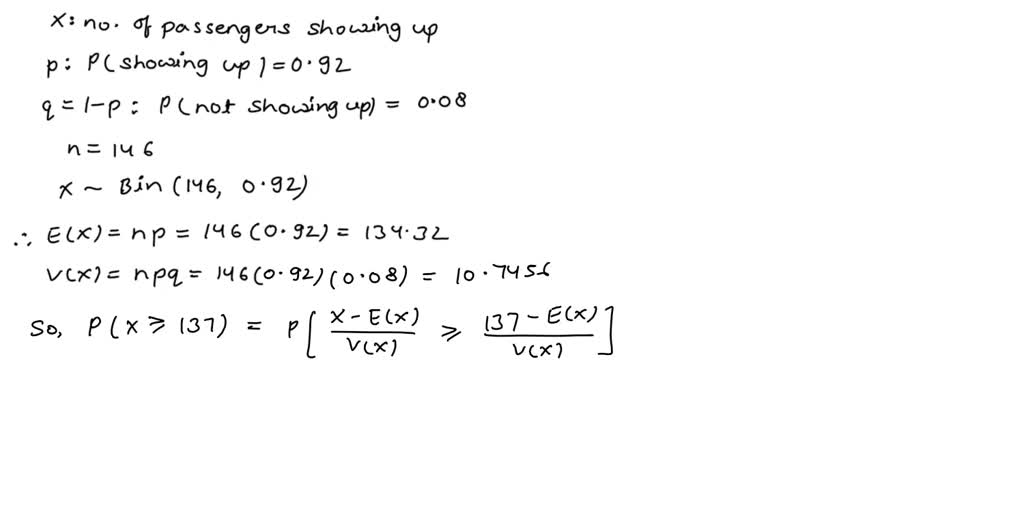 x: no. of passengers showing up
p: P(showing up) = 0.92
q = 1-p: P(not showing up) = 0.08
n = 146
x ~ Bin (146, 0.92)
∴ E(X) = np = 146 (0.92) = 134.32
V(X) = npq = 146(0.92)(0.08) = 10.7456
So, P(X ≥ 137) = P[ (X - E(X))/V(X) ≥ (137 - E(X))/V(X) ]